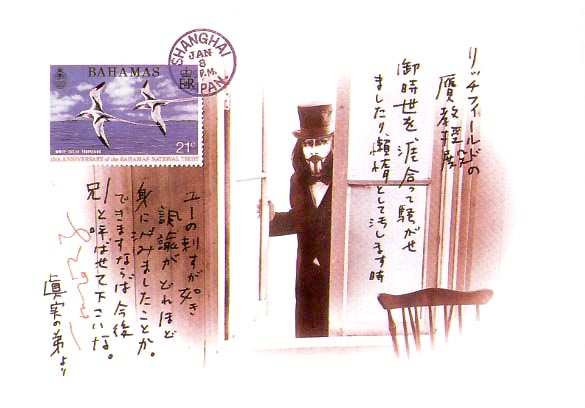 SHANGHAI
JAN
8
P.M.
PAN.
BAHAMAS
EIIR
21c
ANNIVERSARY of the BAHAMAS NATIONAL TRUST
リッチフィールドの
贋教聖
御時世を、合って騒がせ
ましたり、懶惰として汚します時
ユーの刺すが如き
諭がどれほど
身に滲みましたことか。
できますならば今後
兄と呼ばせて下さいな。
眞実の弟より